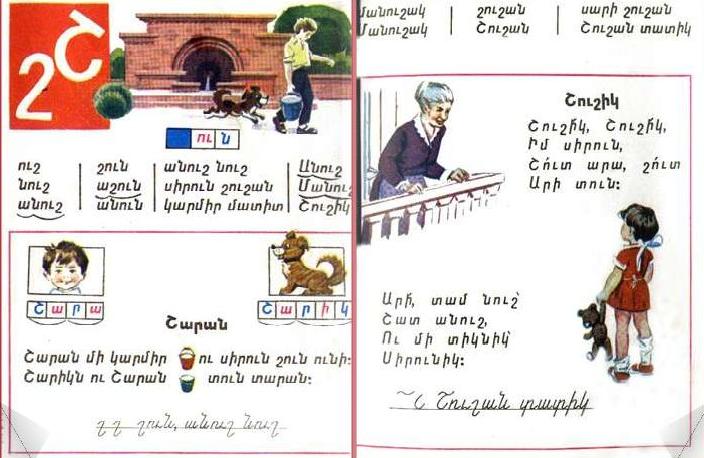 Շ շ
ուն
ուշ
նուշ
անուշ
շուն
աշուն
անուն
անուշ նուշ
սիրուն շուշան
կարմիր մատիտ
Անուշ
Մանուշ
Շուշիկ
Շարա
Շարիկ
Շարան
Շարան մի կարմիր ու սիրուն շուն ունի։
Շարիկն ու Շարան տուն տարան։
շ շ շուն, անուշ նուշ
մանուշակ
Մանուշակ
շուշան
Շուշան
սարի շուշան
Շուշան տատիկ
Շուշիկ
Շուշի՛կ, Շուշի՛կ,
Իմ սիրուն,
Շո՛ւտ արա, շո՛ւտ
Արի տուն։
Արի՛, տամ նուշ՝
Շատ անուշ,
Ու մի տիկնիկ՝
Սիրունիկ։
Շ Շուշան տատիկ